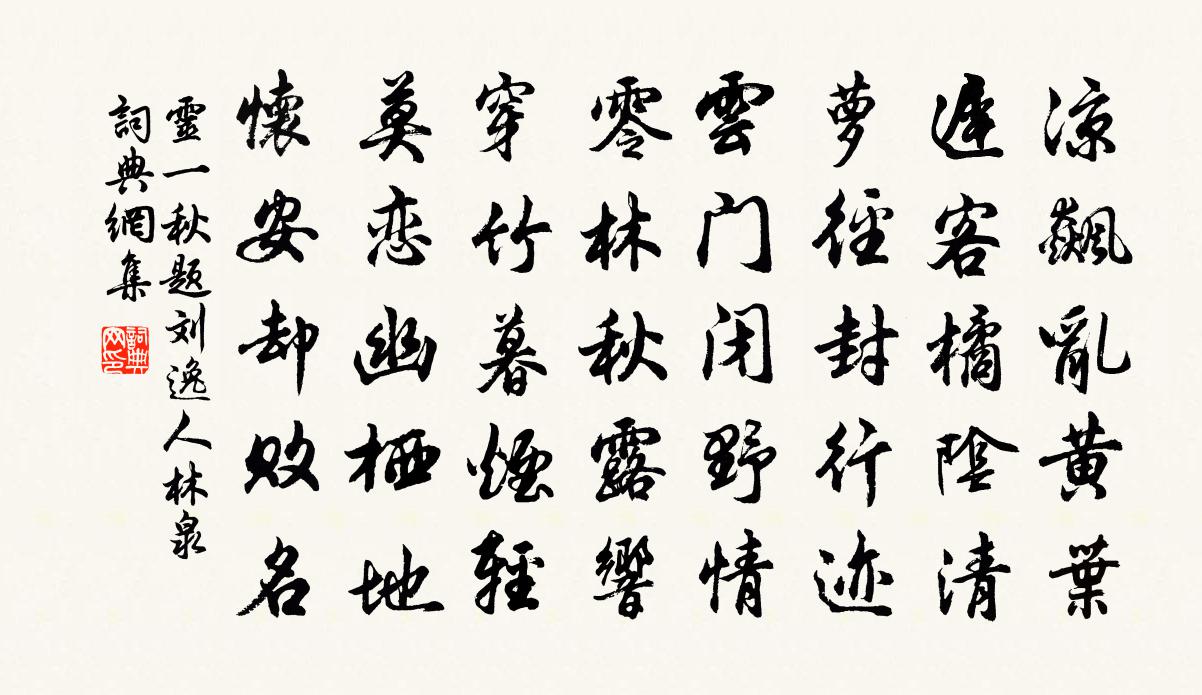 涼飆亂黄葉
遲客橘陰清
萝徑封行迹
雲门闭野情
零林秋露響
穿竹暮煙輕
莫恋幽栖地
懷安却败名
靈一秋题刘逸人林泉
詞典網集
詞典网印